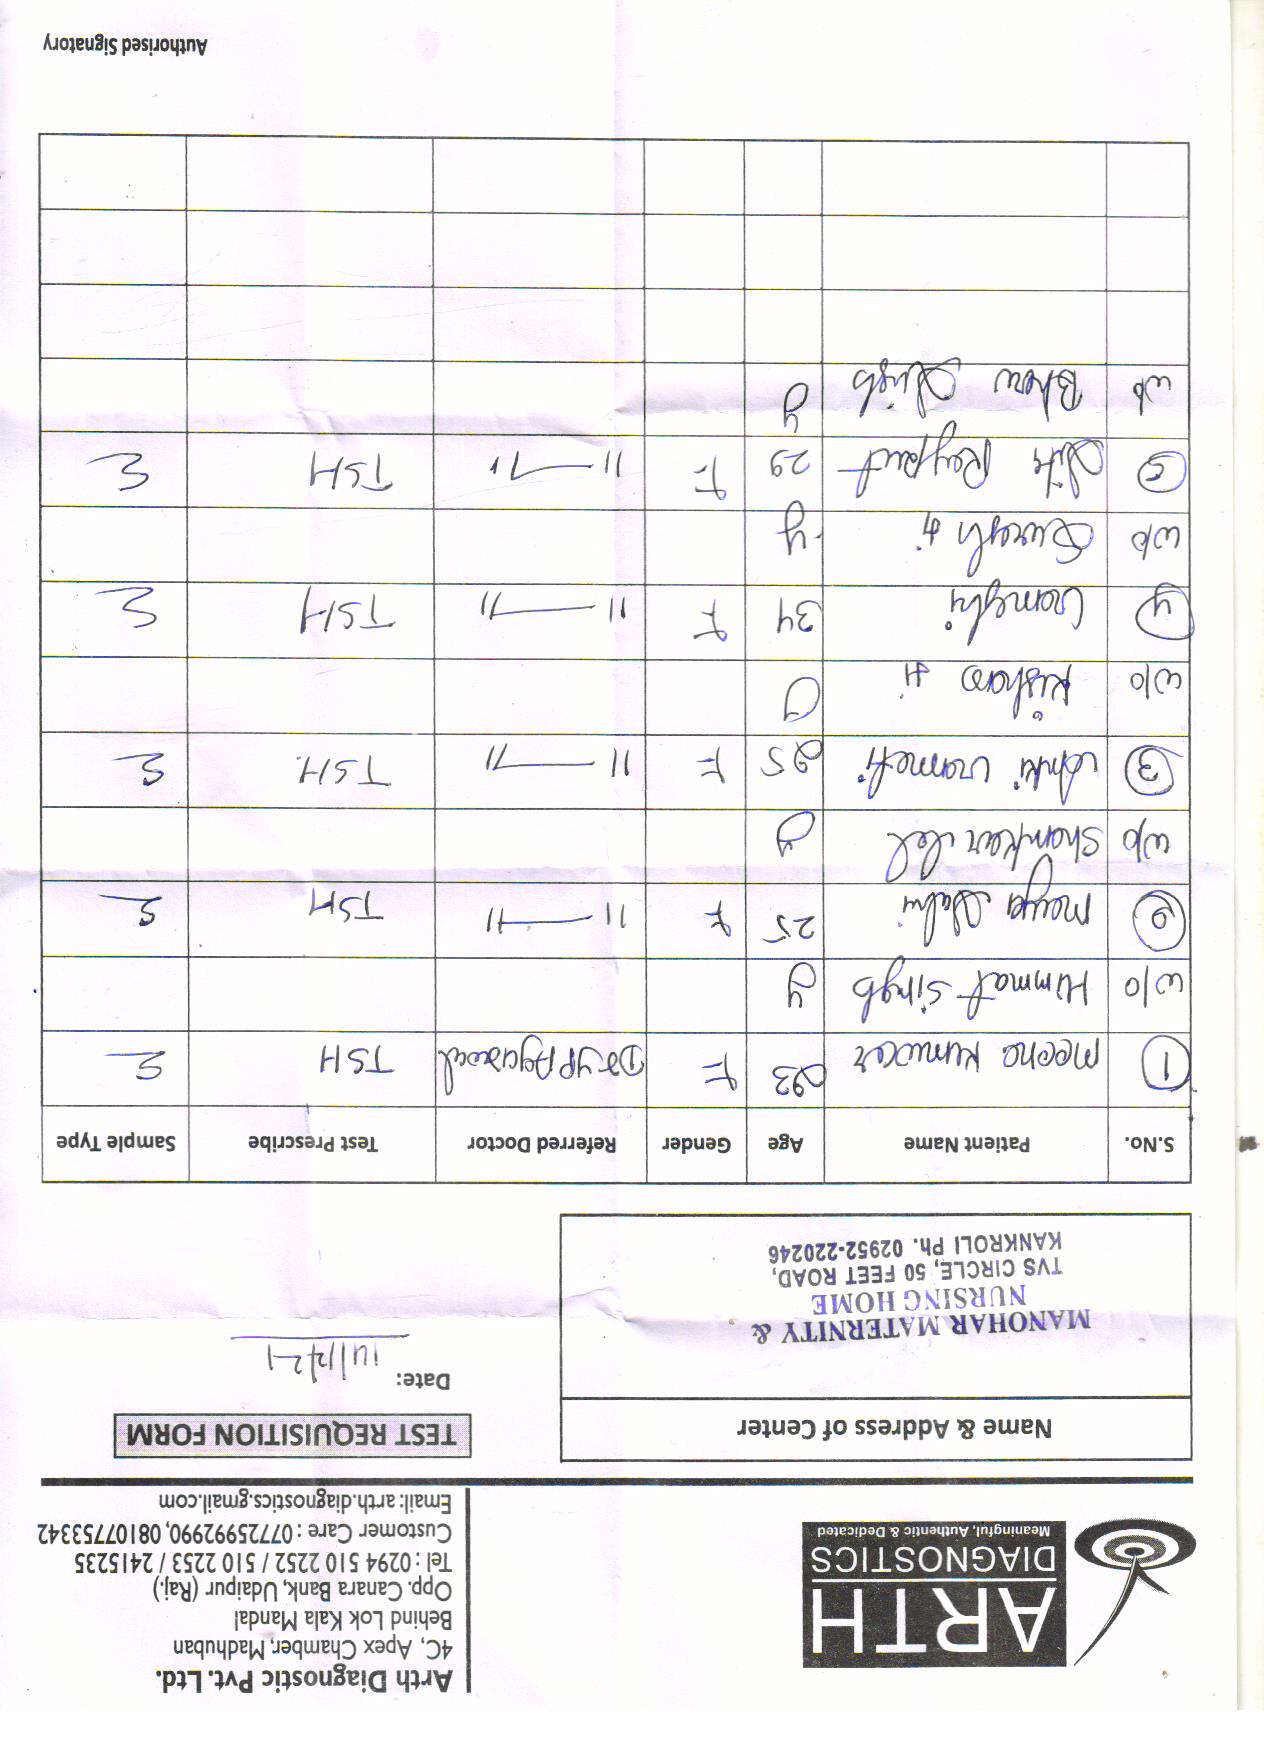 ARTH
DIAGNOSTICS
Meaningful, Authentic & Dedicated
Arth Diagnostic Pvt. Ltd.
4C, Apex Chamber, Madhuban
Behind Lok Kala Mandal
Opp. Canara Bank, Udaipur (Raj.)
Tel : 0294 510 2252 / 510 2253 / 2415235
Customer Care : 07725992990, 08107753342
Email: arth.diagnostics.gmail.com
Name & Address of Center
MANOHAR MATERNITY &
NURSING HOME
TVS CIRCLE, 50 FEET ROAD,
KANKROLI Ph. 02952-220246
TEST REQUISITION FORM
Date:
S.No. Patient Name Age Gender Referred Doctor Test Prescribe Sample Type
1 meena kunwar 23 F Dr YP Agarwal TSH S
w/o Himmat Singh y
2 maya 25 F 11 — 11 TSH S
w/o Shankar Lal y
3 25 F 11 — 11 TSH. S
w/o Kishan y
4 34 F 11 — 11 TSH S
w/o y
5 29 F 11 — 11 TSH S
w/o Singh y
Authorised Signatory